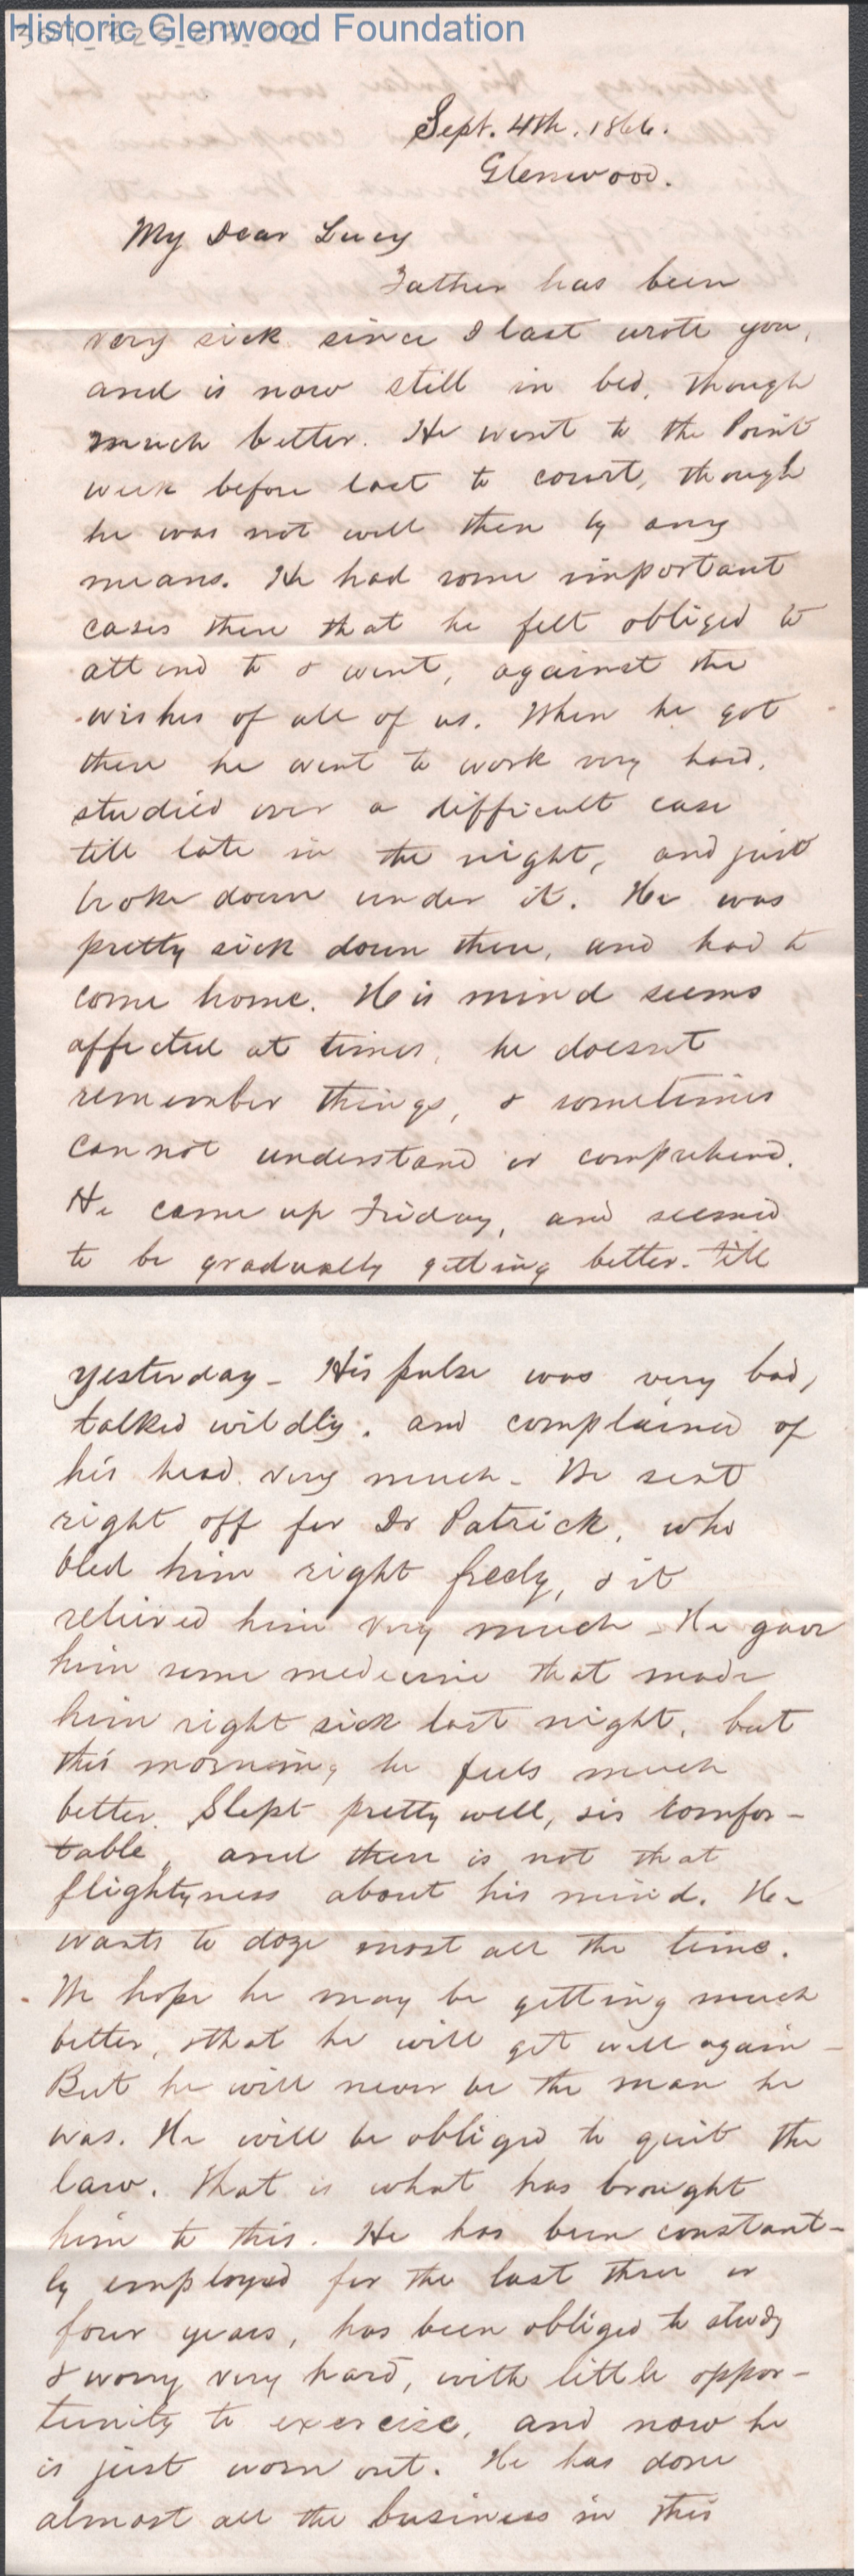 Historic Glenwood Foundation
Sept. 4th. 1866.
Glenwood.
My Dear Lucy
Father has been
very sick since I last wrote you,
and is now still in bed, though
much better. He went to the Point
week before last to court, though
he was not well then by any
means. He had some important
cases there that he felt obliged to
attend to & went, against the
wishes of all of us. When he got
there he went to work very hard,
studied over a difficult case
till late in the night, and just
broke down under it. He was
pretty sick down there, and had to
come home. His mind seems
affected at times, he doesnt
remember things, & sometimes
cannot understand or comprehend.
He came up Friday, and seemed
to be gradually getting better - till
yesterday - His pulse was very bad,
talked wildly, and complained of
his head very much - We sent
right off for Dr Patrick, who
bled him right freely, & it
relieved him very much - He gave
him some medecine that made
him right sick last night, but
this morning he feels much
better. Slept pretty well, is comfor-
table, and there is not that
flightyness about his mind. He
wants to doze most all the time.
We hope he may be getting much
better, & that he will get well again -
But he will never be the man he
was. He will be obliged to quit the
law. That is what has brought
him to this. He has been constant-
ly employed for the last three or
four years, has been obliged to study
& worry very hard, with little oppor-
tunity to exercise, and now he
is just worn out. He has done
almost all the business in this